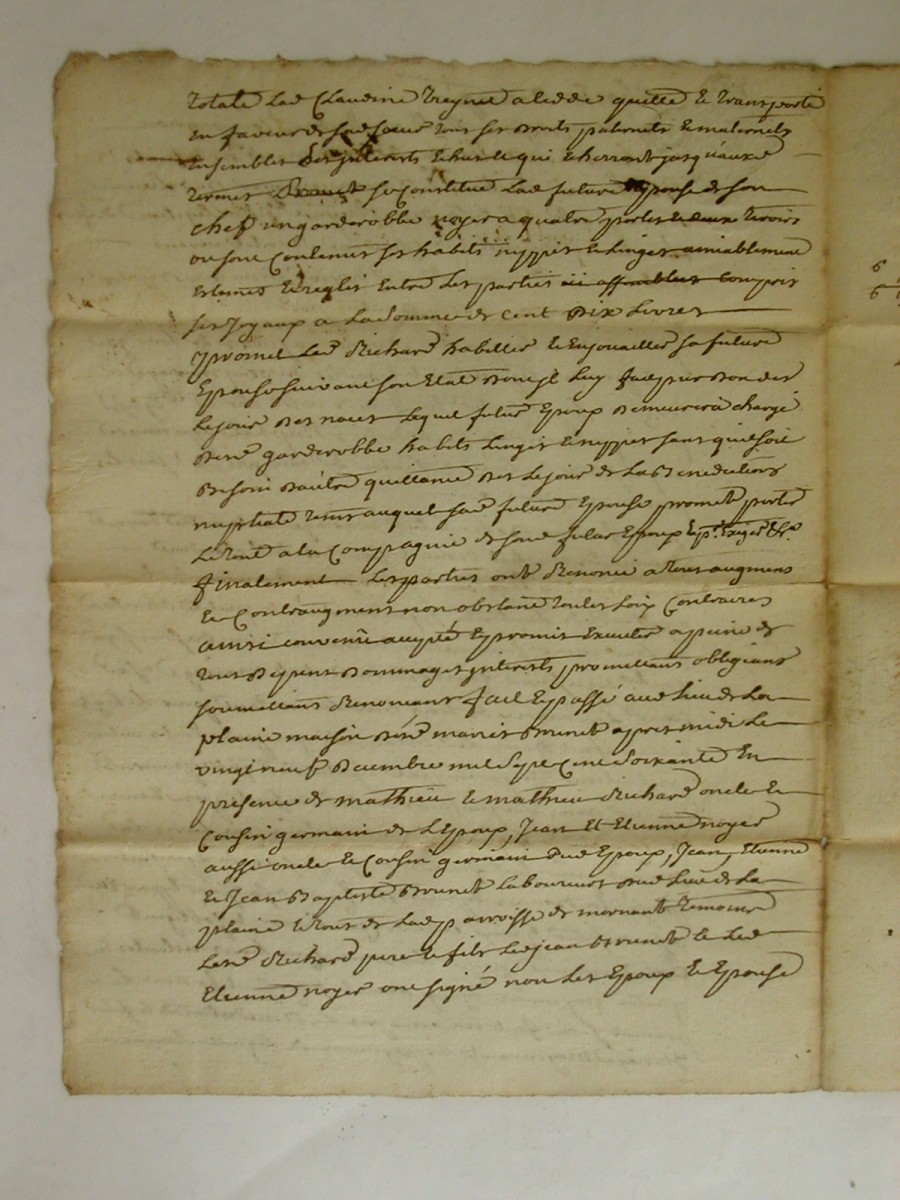 totale lad. Claudine treynet a cedde quitté et transporté
en faveur de sad. soeur tous ses droits paternels et maternels
ensembles les interests echus et qui echerront jusqu'auxd.
termes se constitue lad. future Epouse de son
chef un garderobbe noyer a quatre portes et deux tiroirs
ou sont contenus ses habits nippes et linges amiablement
estemés et reglés entre les parties compris
ses joyaux a la somme de cent dix livres
promet led. Richard habiller et enjouailler sa future
Epouse suivant son Etat
le jour des noces lequel futur Epoux demeurera chargé
desd. garderobbe habits linges et nippes sans qu'il soit
besoin d'autre quittance des le jour de la Benediction
nuptiale tems auquel sad. future Epouse promet porter
le tout a la Compagnie de sond. futur Epoux
finalement les parties ont Renoncé a tous augmens
et contraugmens non obstant toutes loix contraires
ainsi convenu accepté et promis executer a peine de
tous depens dommages interests promettans obligeans
soumettans Renonceans fait et passé aud. lieu de la
plaine maison desd. mariés Brunet apres midi le
vingt neuf decembre mil sept cent soixante En
presence de mathieu et mathieu Richard oncle et
Cousin germain de l'Epoux, Jean Et Etienne noyer
aussi oncle et Cousin germain dud. Epoux, Jean, Etienne
et Jean Baptiste Brunet laboureurs dud. lieu de la
plaine et tous de lad. parroisse de mornant temoins
lesd. Richard pere et fils led. jean Brunet et led.
Etienne noyer ont signé non les Epoux et Epouse